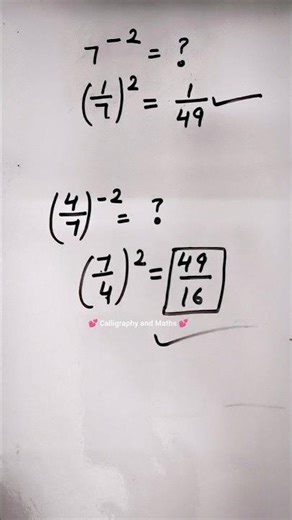 7⁻² = ?
(1/7)² = 1/49 ✓
(4/7)⁻² = ?
(7/4)² = 49/16
💕 Calligraphy and Maths 💕
✓